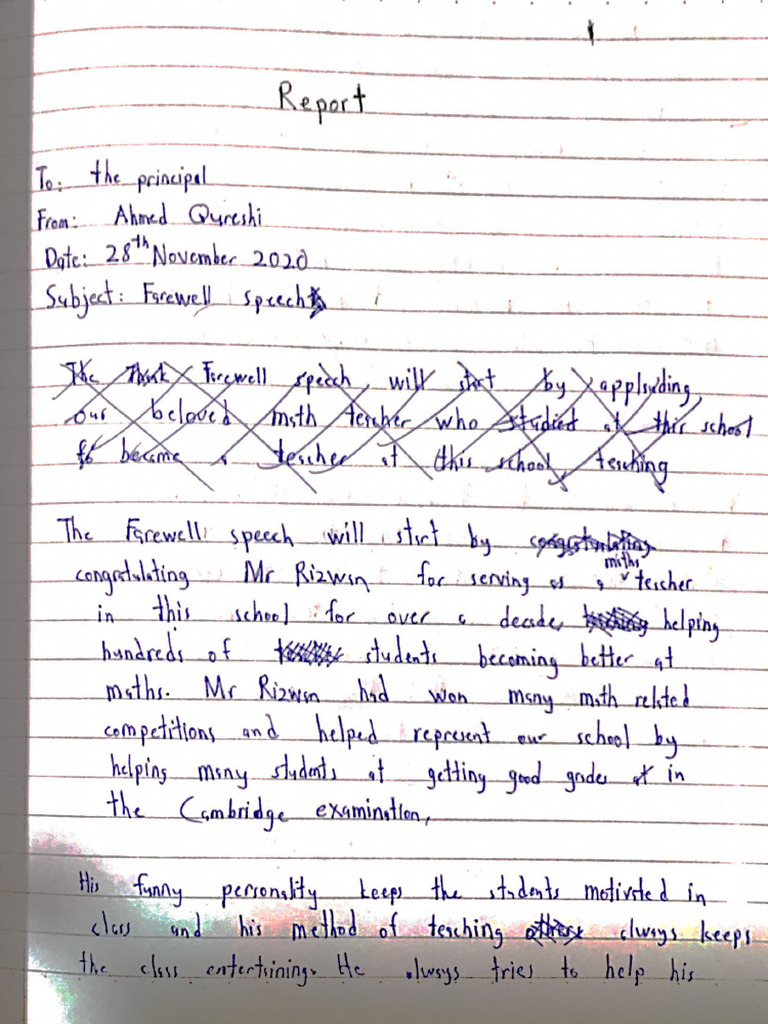 Report
To: the principal
From: Ahmed Qureshi
Date: 28th November 2020
Subject: Farewell speech
The Think Farewell speech will start by applauding,
our beloved math teacher who studied at this school
to became a teacher at this school, teaching
The Farewell speech will start by congratulating
congratulating Mr Rizwan for serving as a maths teacher
in this school for over a decade, helping
hundreds of students becoming better at
maths. Mr Rizwan had won many math related
competitions and helped represent our school by
helping many students at getting good grades at in
the Cambridge examination,
His funny personality keeps the students motivated in
class and his method of teaching always keeps
the class entertaining. He always tries to help his